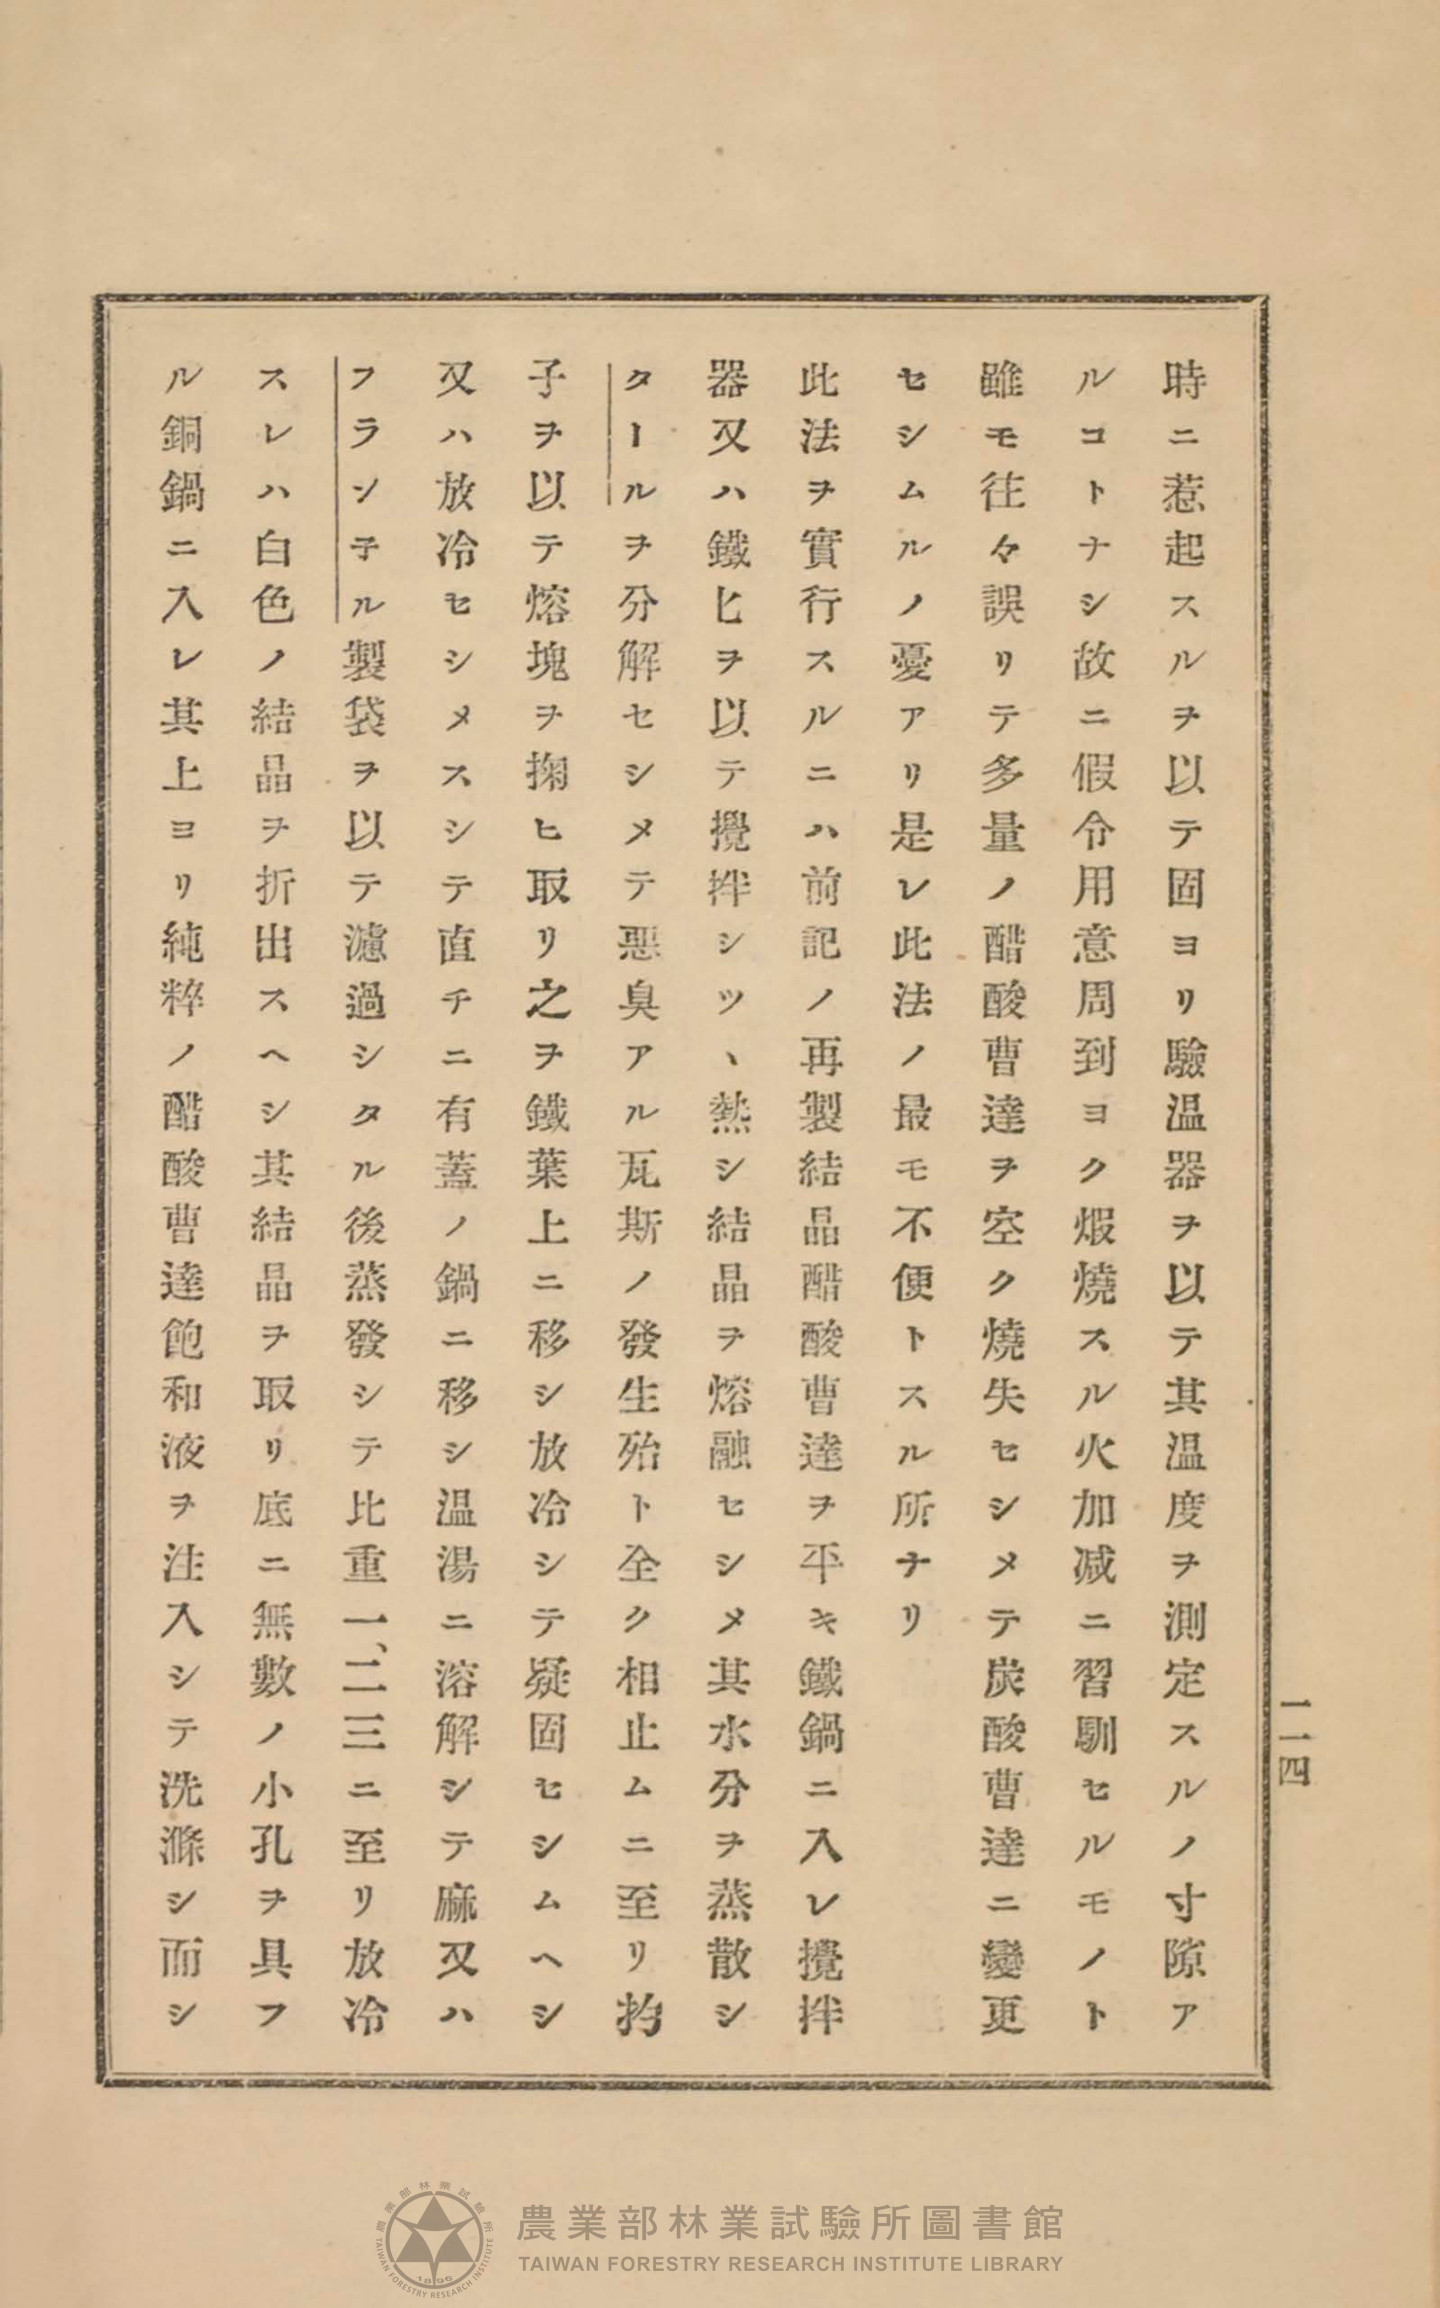 時ニ惹起スルヲ以テ固ヨリ驗温器ヲ以テ其温度ヲ測定スルノ寸隙ア
ルコトナシ故ニ假令用意周到ヨク煆燒スル火加减ニ習馴セルモノト
雖モ往々誤リテ多量ノ醋酸曹達ヲ空ク燒失セシメテ炭酸曹達ニ變更
セシムルノ憂アリ是レ此法ノ最モ不便トスル所ナリ
此法ヲ實行スルニハ前記ノ再製結晶醋酸曹達ヲ平キ鐵鍋ニ入レ攪拌
器又ハ鐵匕ヲ以テ攪拌シツヽ熱シ結晶ヲ熔融セシメ其水分ヲ蒸散シ
タールヲ分解セシメテ悪臭アル瓦斯ノ發生殆ト全ク相止ムニ至リ杓
子ヲ以テ熔塊ヲ掬ヒ取リ之ヲ鐵葉上ニ移シ放冷シテ疑固セシムヘシ
又ハ放冷セシメスシテ直チニ有蓋ノ鍋ニ移シ温湯ニ溶解シテ麻又ハ
フランチル製袋ヲ以テ濾過シタル後蒸發シテ比重一、二三ニ至リ放冷
スレハ白色ノ結晶ヲ折出スヘシ其結晶ヲ取リ底ニ無數ノ小孔ヲ具フ
ル銅鍋ニ入レ其上ヨリ純粹ノ醋酸曹達飽和液ヲ注入シテ洗滌シ而シ
一一四
農業部林業試驗所圖書館
TAIWAN FORESTRY RESEARCH INSTITUTE LIBRARY
農業部林業試驗所
TAIWAN FORESTRY RESEARCH INSTITUTE
1896